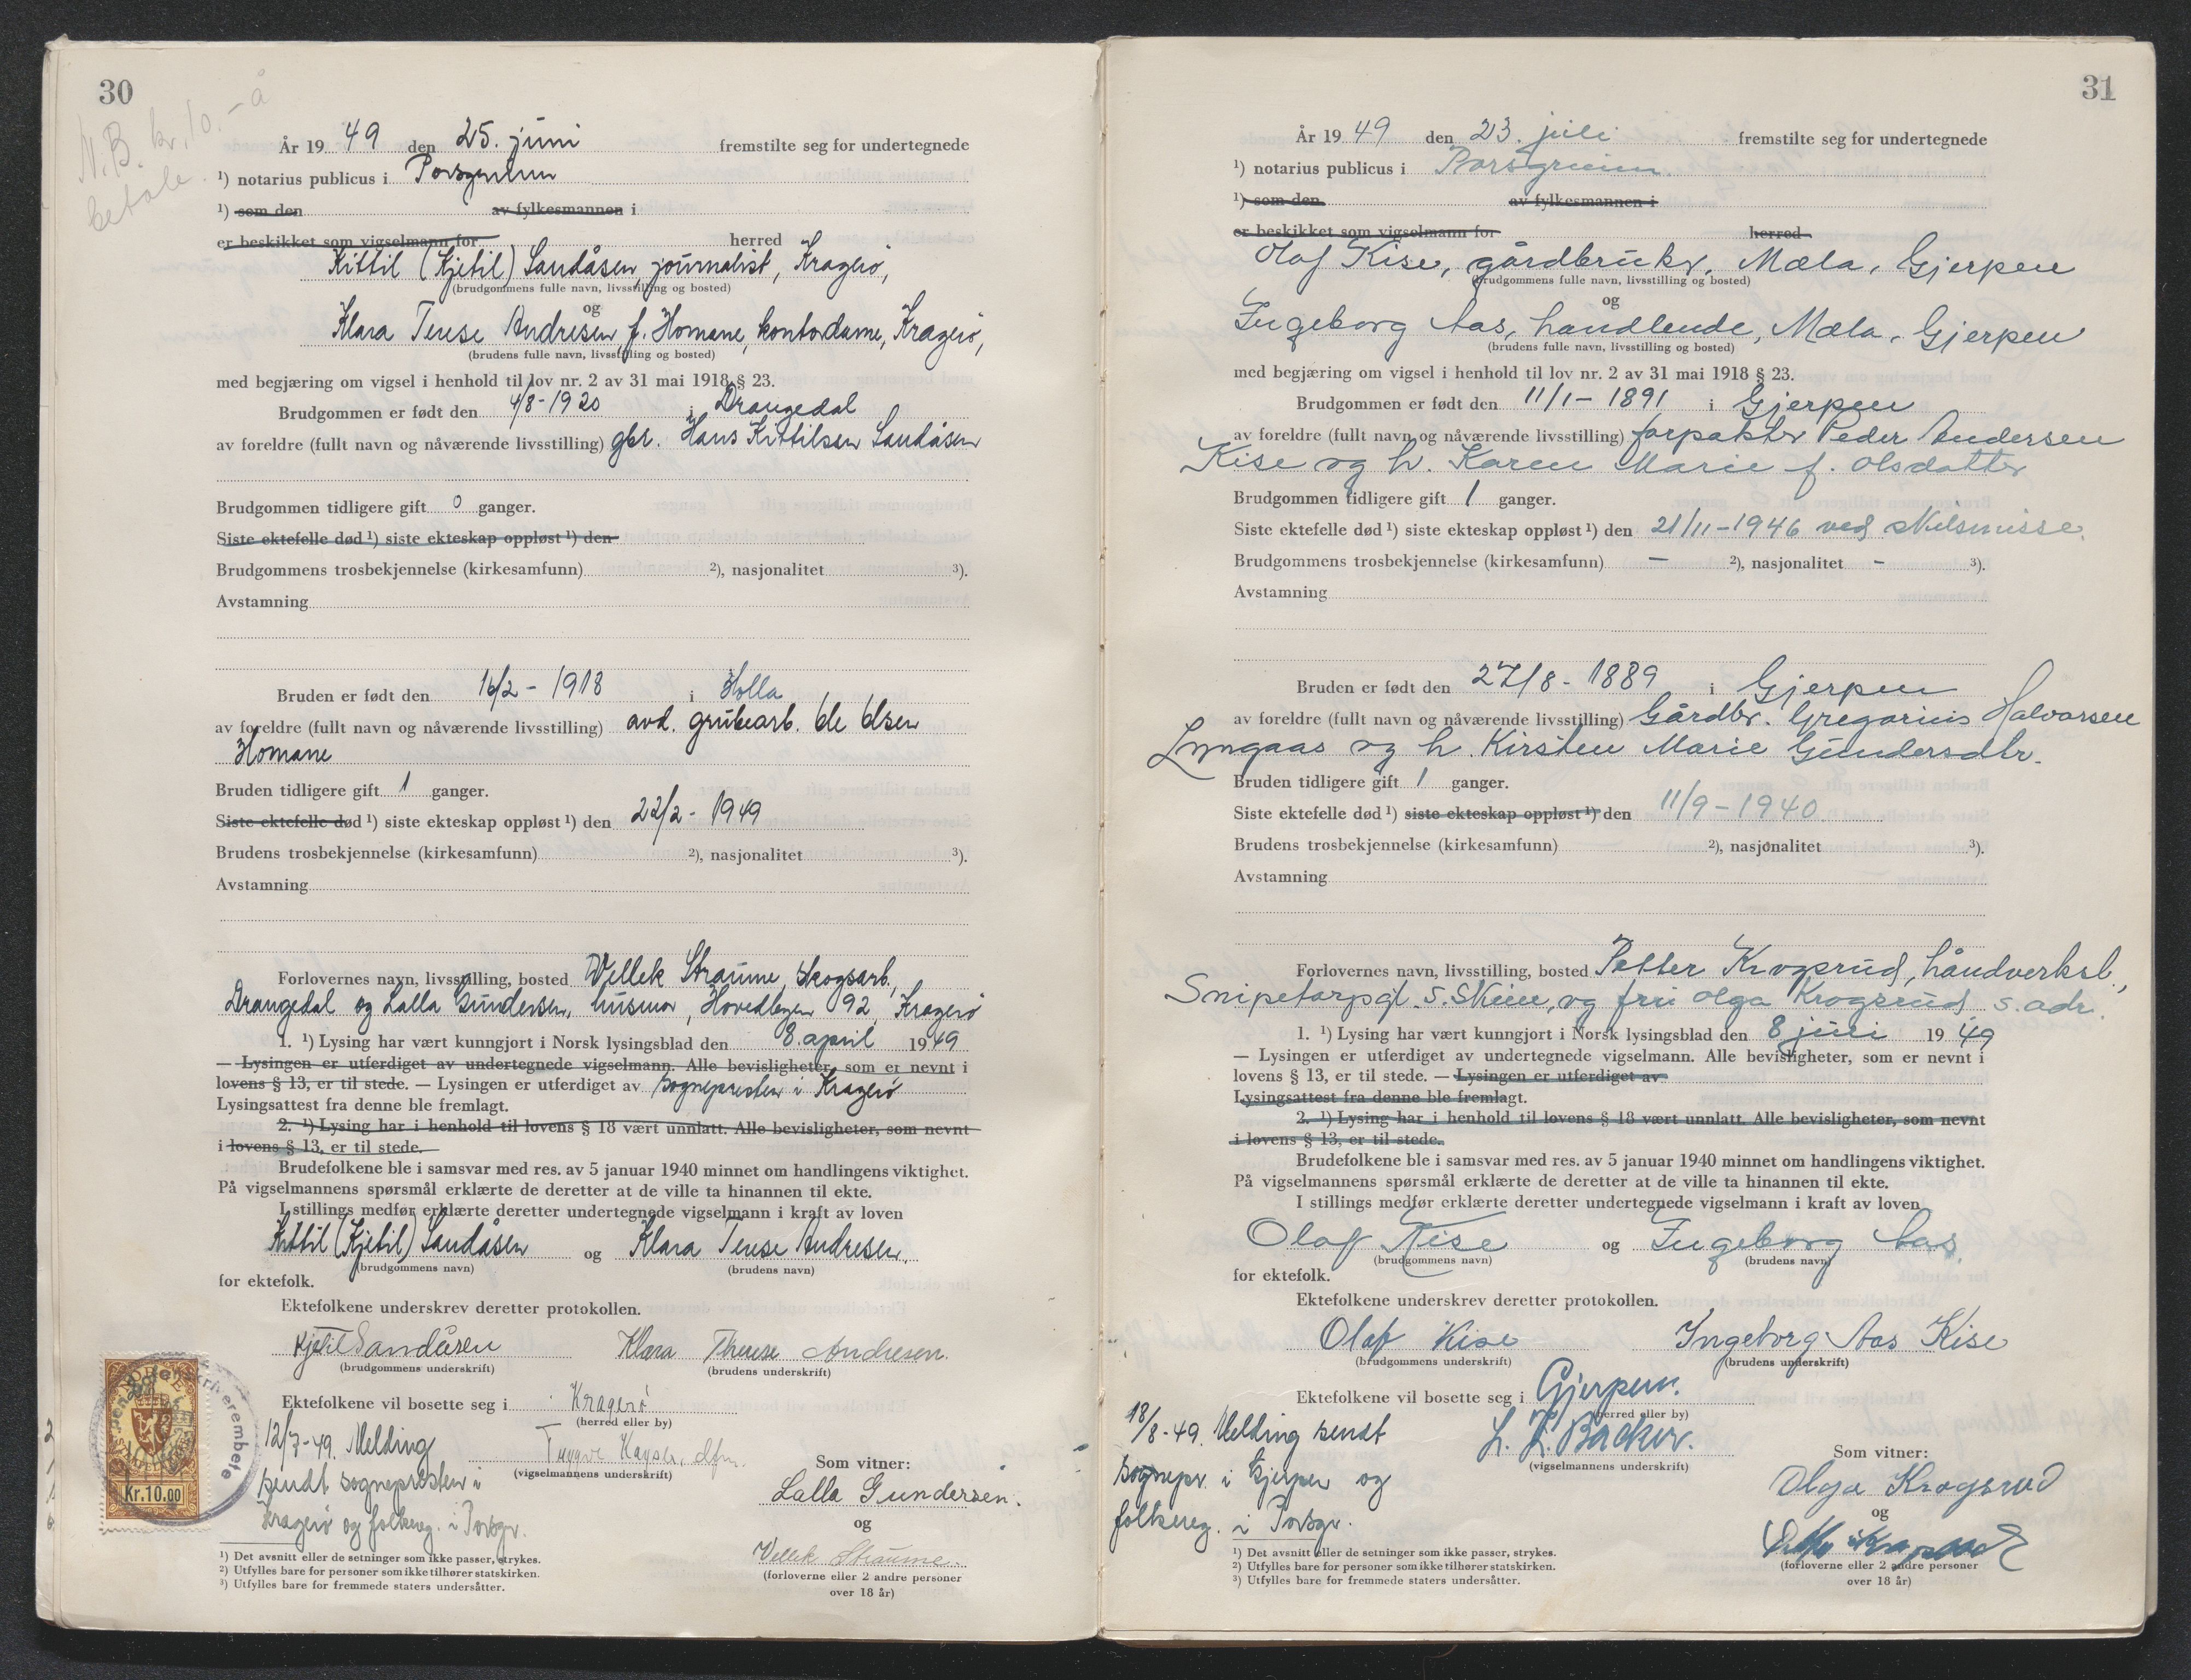 30
N.B. kr. 10.- å
betale.
År 19 49 den 25. juni fremstilte seg for undertegnede
¹) notarius publicus i Porsgrunn
¹) som den av fylkesmannen i
er beskikket som vigselmann for herred
Kittil (Kjetil) Sandåsen, journalist, Kragerø,
(brudgommens fulle navn, livsstilling og bosted)
og
Klara Terese Andresen, f. Homane, kontordame, Kragerø,
(brudens fulle navn, livsstilling og bosted)
med begjæring om vigsel i henhold til lov nr. 2 av 31 mai 1918 § 23.
Brudgommen er født den 4/8-1920 i Drangedal
av foreldre (fullt navn og nåværende livsstilling) gbr. Hans Kittilsen Sandåsen
Brudgommen tidligere gift 0 ganger.
Siste ektefelle død ¹) siste ekteskap oppløst ¹) den
Brudgommens trosbekjennelse (kirkesamfunn) ²), nasjonalitet ³).
Avstamning
Bruden er født den 16/2 - 1918 i Holla
av foreldre (fullt navn og nåværende livsstilling) avd. grubearb. Ole Olsen
Homane
Bruden tidligere gift 1 ganger.
Siste ektefelle død ¹) siste ekteskap oppløst ¹) den 22/2 - 1949
Brudens trosbekjennelse (kirkesamfunn) ²), nasjonalitet ³).
Avstamning
Forlovernes navn, livsstilling, bosted Vellek Straume, skogsarb.,
Drangedal og Lalla Gundersen, husmor, Hovedlegen 92, Kragerø
1. ¹) Lysing har vært kunngjort i Norsk lysingsblad den 8. april 19 49
— Lysingen er utferdiget av undertegnede vigselmann. Alle bevisligheter, som er nevnt i
lovens § 13, er til stede. — Lysingen er utferdiget av sognepresten i Kragerø
Lysingsattest fra denne ble fremlagt.
2. ¹) Lysing har i henhold til lovens § 18 vært unnlatt. Alle bevisligheter, som nevnt
i lovens § 13, er til stede.
Brudefolkene ble i samsvar med res. av 5 januar 1940 minnet om handlingens viktighet.
På vigselmannens spørsmål erklærte de deretter at de ville ta hinannen til ekte.
I stillings medfør erklærte deretter undertegnede vigselmann i kraft av loven
Kittil (Kjetil) Sandåsen og Klara Terese Andresen,
(brudgommens navn) (brudens navn)
for ektefolk.
Ektefolkene underskrev deretter protokollen.
Kjetil Sandåsen Klara Therese Andresen.
(brudgommens underskrift) (brudens underskrift)
Ektefolkene vil bosette seg i Kragerø
(herred eller by)
12/7-49. Melding
sendt sognepresten i
Kragerø og folkereg. i Porsgr.
Tryggve Kayser, dfm.
(vigselmannens underskrift)
Som vitner:
Lalla Gundersen.
og
Vellek Straume.
(forloverne eller 2 andre personer
over 18 år)
Kr.10.00
¹) Det avsnitt eller de setninger som ikke passer, strykes.
²) Utfylles bare for personer som ikke tilhører statskirken.
³) Utfylles bare for fremmede staters undersåtter.
31
År 19 49 den 23. juli fremstilte seg for undertegnede
¹) notarius publicus i Porsgrunn.
¹) som den av fylkesmannen i
er beskikket som vigselmann for herred
Olaf Kise, gårdbruker, Mæla, Gjerpen
(brudgommens fulle navn, livsstilling og bosted)
og
Ingeborg Aas, handlende, Mæla, Gjerpen
(brudens fulle navn, livsstilling og bosted)
med begjæring om vigsel i henhold til lov nr. 2 av 31 mai 1918 § 23.
Brudgommen er født den 11/1 - 1891 i Gjerpen
av foreldre (fullt navn og nåværende livsstilling) forpakter Peder Andersen
Kise og h. Karen Marie f. Olsdatter
Brudgommen tidligere gift 1 ganger.
Siste ektefelle død ¹) siste ekteskap oppløst ¹) den 21/11-1946 ved skilsmisse.
Brudgommens trosbekjennelse (kirkesamfunn) — ²), nasjonalitet - ³).
Avstamning
Bruden er født den 27/8 - 1889 i Gjerpen
av foreldre (fullt navn og nåværende livsstilling) Gårdbr. Gregorius Halvorsen
Lyngaas og h. Kirsten Marie Gundersdtr.
Bruden tidligere gift 1 ganger.
Siste ektefelle død ¹) siste ekteskap oppløst ¹) den 11/9 - 1940.
Brudens trosbekjennelse (kirkesamfunn) ²), nasjonalitet ³).
Avstamning
Forlovernes navn, livsstilling, bosted Petter Krogsrud, håndverksb.,
Snipetorpgt. 5. Skien, og fru Olga Krogsrud s. adr.
1. ¹) Lysing har vært kunngjort i Norsk lysingsblad den 8 juni 19 49
— Lysingen er utferdiget av undertegnede vigselmann. Alle bevisligheter, som er nevnt i
lovens § 13, er til stede. — Lysingen er utferdiget av
Lysingsattest fra denne ble fremlagt.
2. ¹) Lysing har i henhold til lovens § 18 vært unnlatt. Alle bevisligheter, som nevnt
i lovens § 13, er til stede.
Brudefolkene ble i samsvar med res. av 5 januar 1940 minnet om handlingens viktighet.
På vigselmannens spørsmål erklærte de deretter at de ville ta hinannen til ekte.
I stillings medfør erklærte deretter undertegnede vigselmann i kraft av loven
Olaf Kise og Ingeborg Aas.
(brudgommens navn) (brudens navn)
for ektefolk.
Ektefolkene underskrev deretter protokollen.
Olaf Kise Ingeborg Aas Kise
(brudgommens underskrift) (brudens underskrift)
Ektefolkene vil bosette seg i Gjerpen.
(herred eller by)
18/8-49. Melding sendt
sognepr. i Gjerpen og
folkereg. i Porsgr.
Backer.
(vigselmannens underskrift)
Som vitner:
Olga Krogsrud
og
Krogsrud
(forloverne eller 2 andre personer
over 18 år)
¹) Det avsnitt eller de setninger som ikke passer, strykes.
²) Utfylles bare for personer som ikke tilhører statskirken.
³) Utfylles bare for fremmede staters undersåtter.